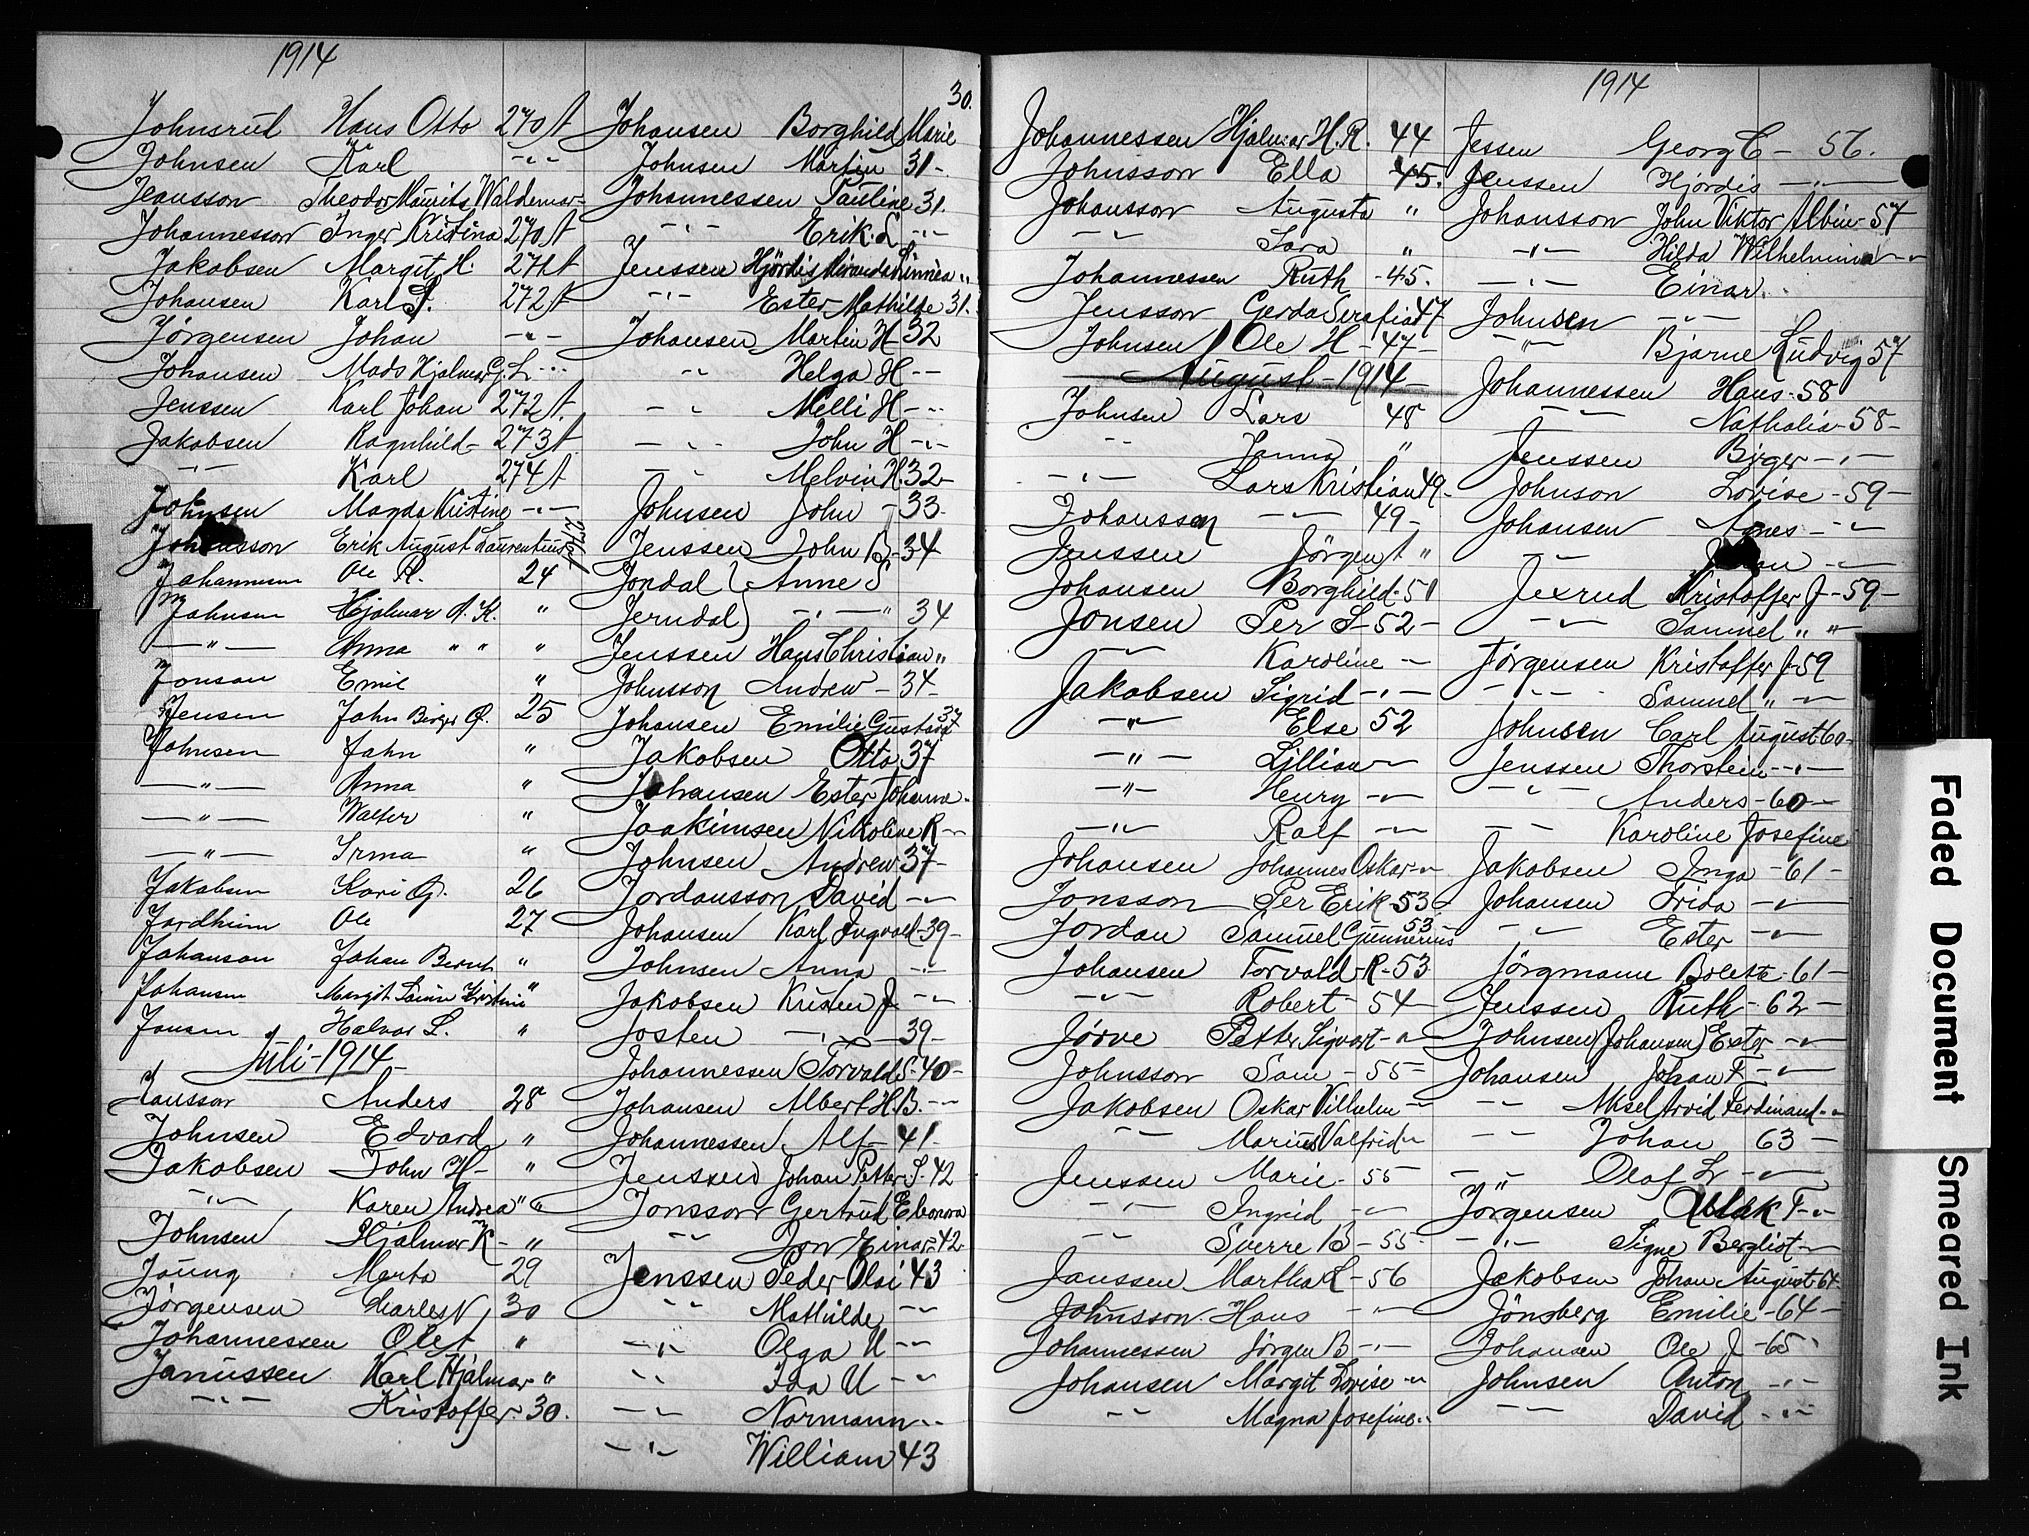 1914
Johnsrud Hans Otto 270A
Johnsen Karl -"-
Jeansson Theodor Maurits Waldemar -
Johannesson Inger Kristina 270A
Jakobsen Margit H. 271A
Johansen Karl S. 272A
Jørgensen Johan -"-
Johansen Mads Hjalmar G. L. ---
Jenssen Karl Johan 272A.
Jakobsen Ragnhild - 273A
-"- Karl 274A
Johnsen Magda Kristine -"-
Johansson Erik August Laurentius
Johannesen Ole R. 24
Johnsen Hjalmar A. K. "
-"- Anna " " "
Jonson Emil "
Jensen John Birger Ø. 25
Johnsen John "
-"- Anna "
-"- Walter "
-"- Irma "
Jakobsen Kari G. 26
Jordheim Ole 27
Johanson Johan Bernt "
Johansen Margit Kristine "
Jonsen Halvor L. "
Juli - 1914 -
Jansson Anders 28
Johnsen Edvard "
Jakobsen John H - "
-"- Karen Andrea " "
Johnsen Hjalmar K - "
Joung Marta 29
Jørgensen Charles N 30
Johannessen Ole A "
Janussen Karl Hjalmar "
-"- Kristoffer - 30.
30.
Johansen Borghild Marie
Johnsen Martin 31 -
Johannessen Pauline 31.
-"- Erik. L -"-
Jenssen Hjördis Miranda Linnea "
-"- Ester Mathilde 31.
Johansen Martin H - 32
" Helga H --
- " Melli H - --
-"- John H -"-
- " Melvin H. 32 -
Johnsen John - 33 -
Jenssen John B - 34
Jondal } Anne S
Jerndal } -"- -" 34
Jenssen Hans Christian "
Johnsson Andrew - 34 -
Johansen Emilie Gustava 37
Jakobsen Otto 37
Johansen Ester Johanna -
Joakimsen Nikoline R -
Johnsen Andrew 37 -
Jordansson David -"-
Johansen Karl Ingvald - 39 -
Johnsen Anna -"-
Jakobsen Kristen J. -"-
Josten -"- 39 -
Johannessen Torvald S - 40 -
Johansen Albert H. B. - --
Johannessen Alf - 41 -
Jenssen Johan Petter S. 42
Jonsson Gertrud Eleonora
-"- Jon Einar - 42 -
Jenssen Peder Olai 43
-"- Mathilde -"-
-"- Olga U -"-
-"- Ida U -"-
-"- Normann --
-"- William 43
1914
Johannessen Hjalmar H. R. 44
Johnsson Ella 45.
Johansson Augusta "
-"- Sara "
Johannessen Ruth - 45.
Jensson Gerda Serafia 47
Johnsen Ole H - 47 -
August - 1914 -
Johnsen Lars 48
-"- Hanna "
-"- Lars Kristian 49 -
Johanssen -"- 49 -
Jenssen Jörgen A "
Johansen Borghild - 51
Jonsen Per S - 52 -
-"- Karoline -"-
Jakobsen Sigrid -"-
-"- Else 52
-"- Lillian -"-
-"- Henry -"-
-"- Ralf -"-
Johansen Johannes Oskar -"-
Jonsson Per Erik - 53 -
Jordan Samuel Gunnerius 53
Johansen Torvald R - 53
-"- Robert - 54 -
Jørve Petter Sigvart -"-
Johnsson Sam - 55 -
Jakobsen Oskar Vilhelm -"-
-"- Marius Valfrid -"-
Jenssen Marie - 55
-"- Ingrid -"-
-"- Sverre B - 55 -
Janssen Martha L - 56
Johnsson Hans -"-
Johannessen Jörgen B -"-
Johansen Margit Lovise -"-
-"- Magna Josefine -"-
1914
Jessen Georg C - 56.
Jenssen Hjördis -"-
Johansson John Viktor Albin - 57
-"- Hilda Wilhelmina -"-
-"- Einar.
Johnsen -"-
-"- Bjarne Ludvig 57
Johannessen Hans - 58
-"- Nathalia - 58 -
Jenssen Birger -"-
Johnson Lovise - 59 -
Johansen Agnes -"-
-"- Johan -"-
Jexrud Kristoffer J - 59 -
-"- Samuel " "
Jørgensen Kristoffer J - 59
-"- Samuel " -"-
Johnsen Carl August 60 -
Jenssen Thorstein -"-
-"- Anders - 60 -
-"- Karoline Josefine
Jakobsen Inga - 61 -
Johansen Frida -"-
-"- Ester -"-
Jörgmann Bolette - 61 -
Jenssen Ruth - 62 -
Johnsen (Johansen) Ester -"-
Johansen Johan F -"-
-"- Aksel Arvid Ferdinand -"-
-"- Johan 63 -
-"- Olaf L -"-
Jørgensen Aslak F -"-
-"- Signe Bergliot -"-
Jakobsen Johan August 64 -
Jönsberg Emilie - 64 -
Johansen Ole J - 65 -
Johnsen Anton -"-
-"- David -"-
Faded Document
Smeared Ink